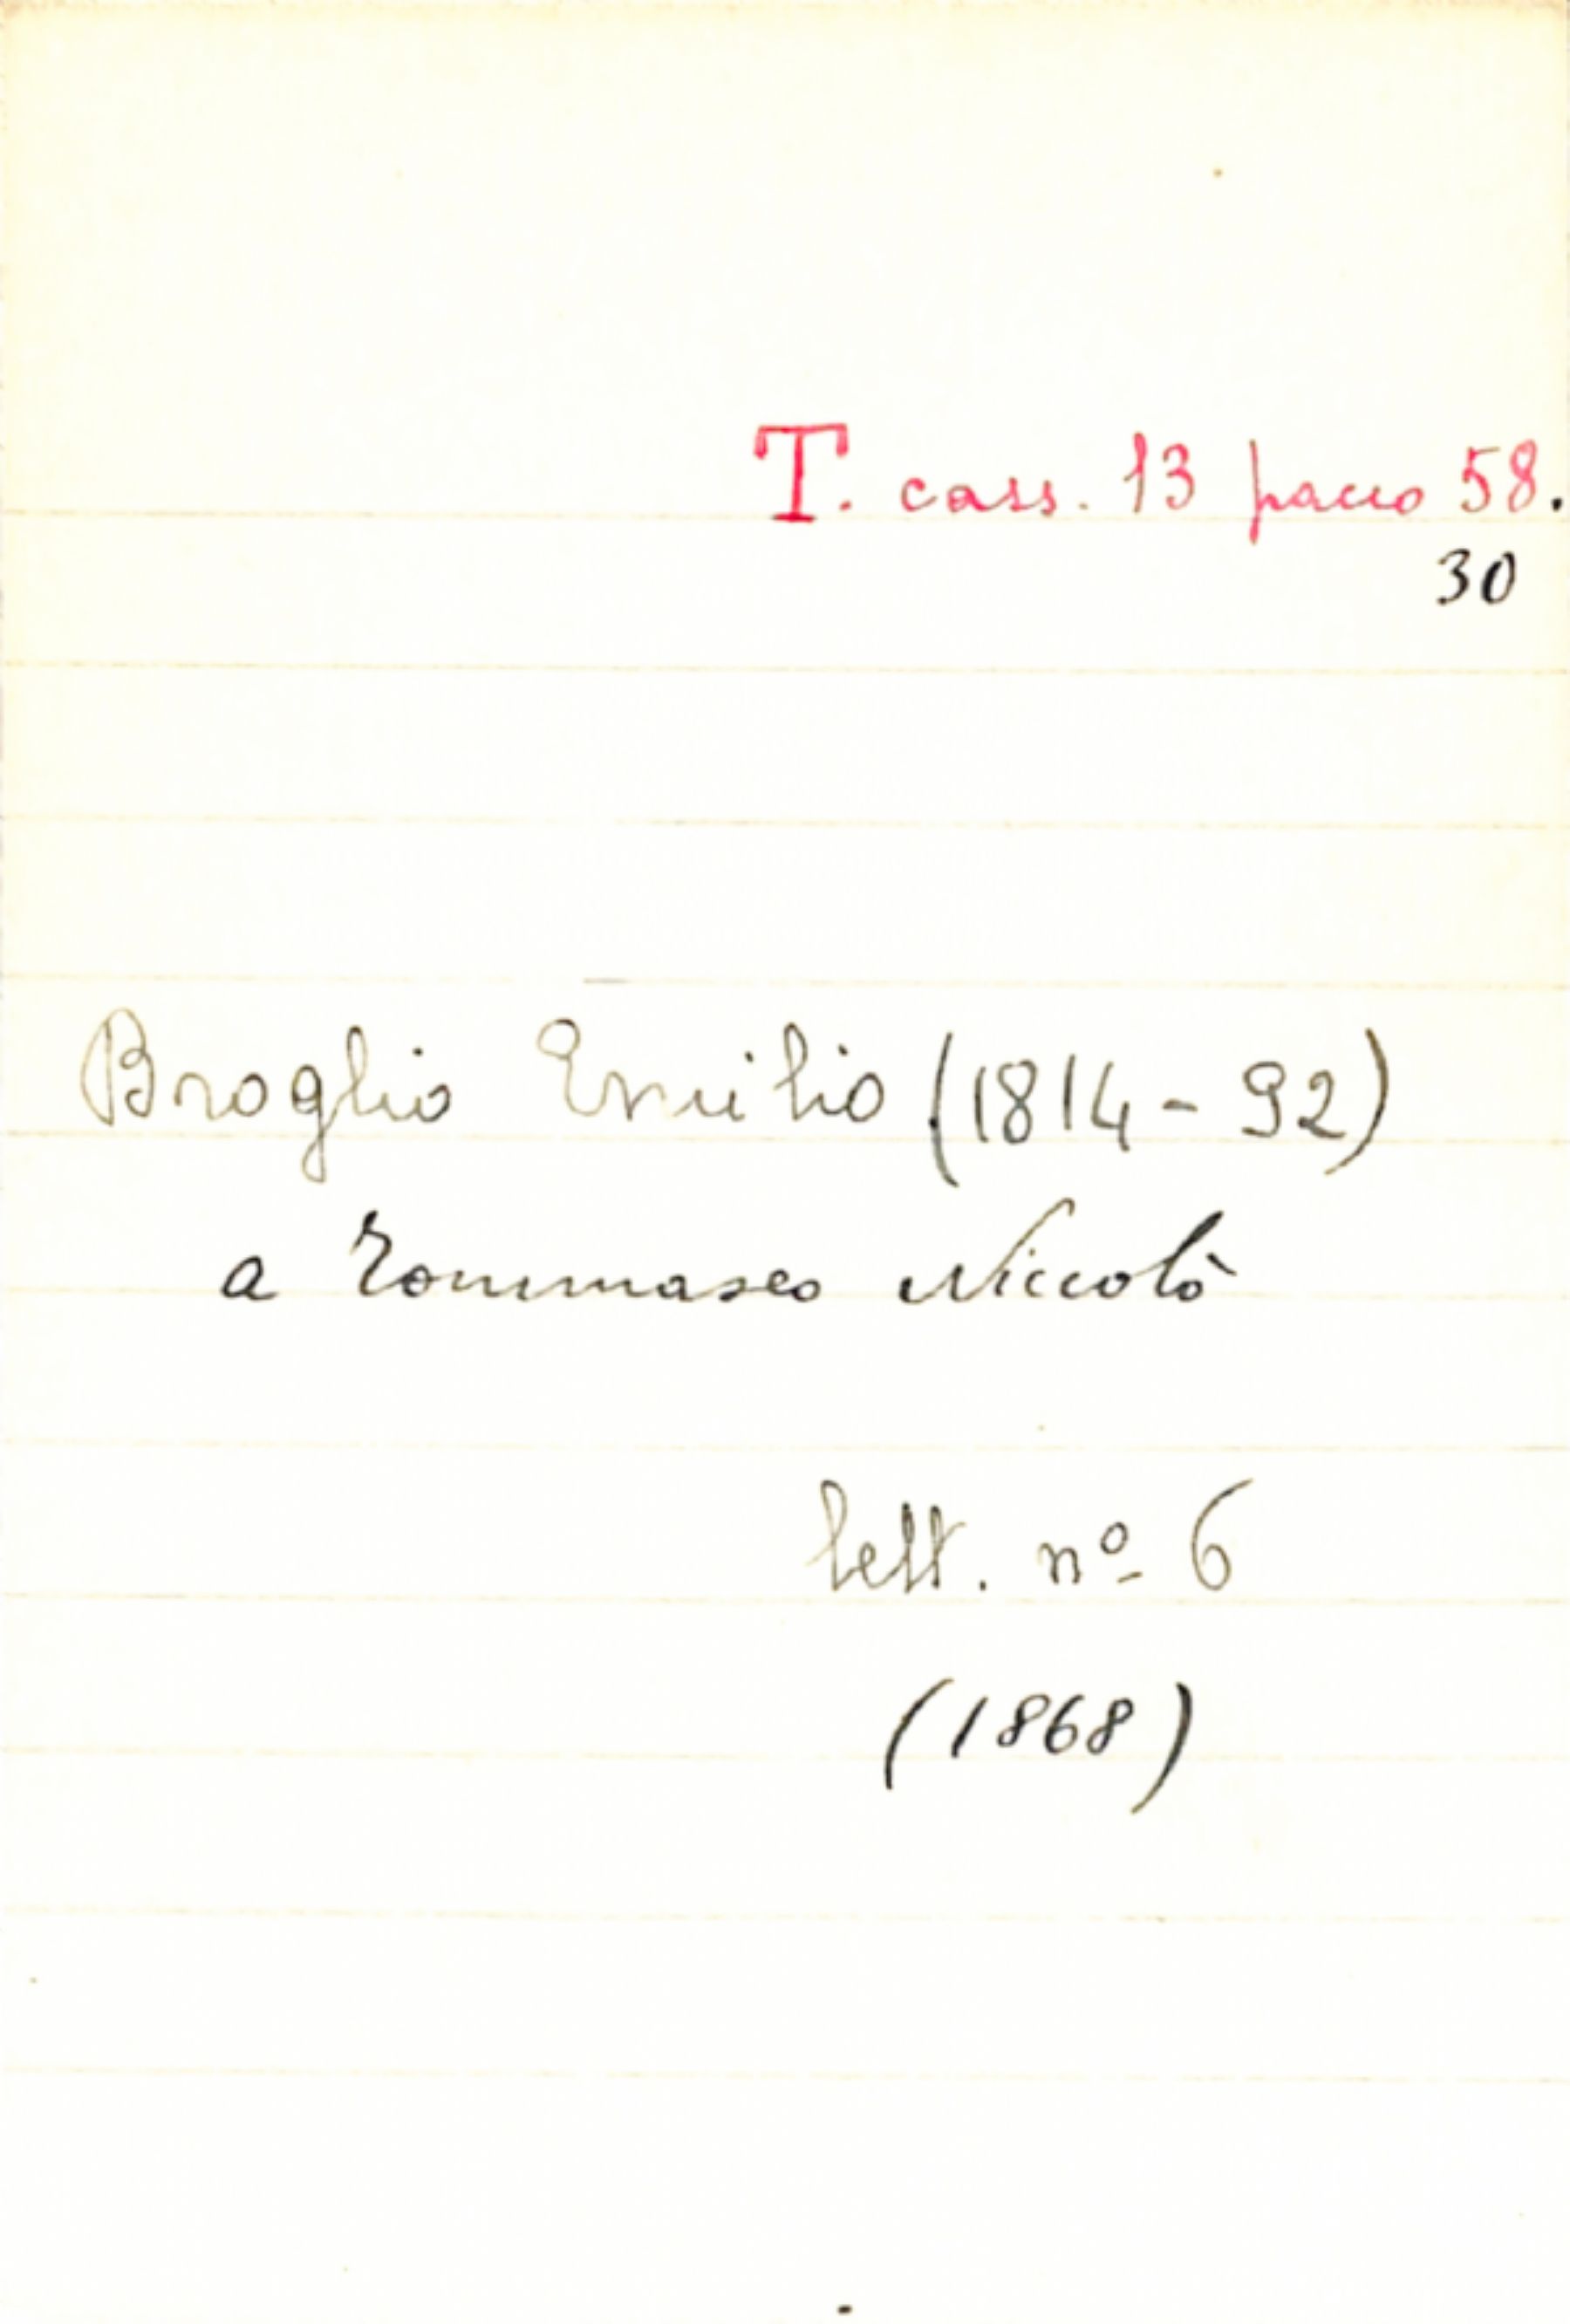 T. cass. 13 pacco 58.
30
Broglio Emilio (1814 - 92)
a Tommaseo Niccolò
lett. nº 6
(1868)